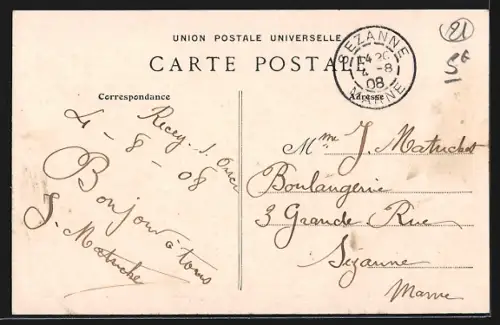 UNION POSTALE UNIVERSELLE
CARTE POSTALE
SEZANNE
4 -8
08
MARNE
21
Correspondance
Adresse
Recey. s. Ource
4 - 8 - 08
Bonjour à tous
J. Matuchet
Mme J. Matuchet
Boulangerie
3 Grande Rue
Sezanne
Marne